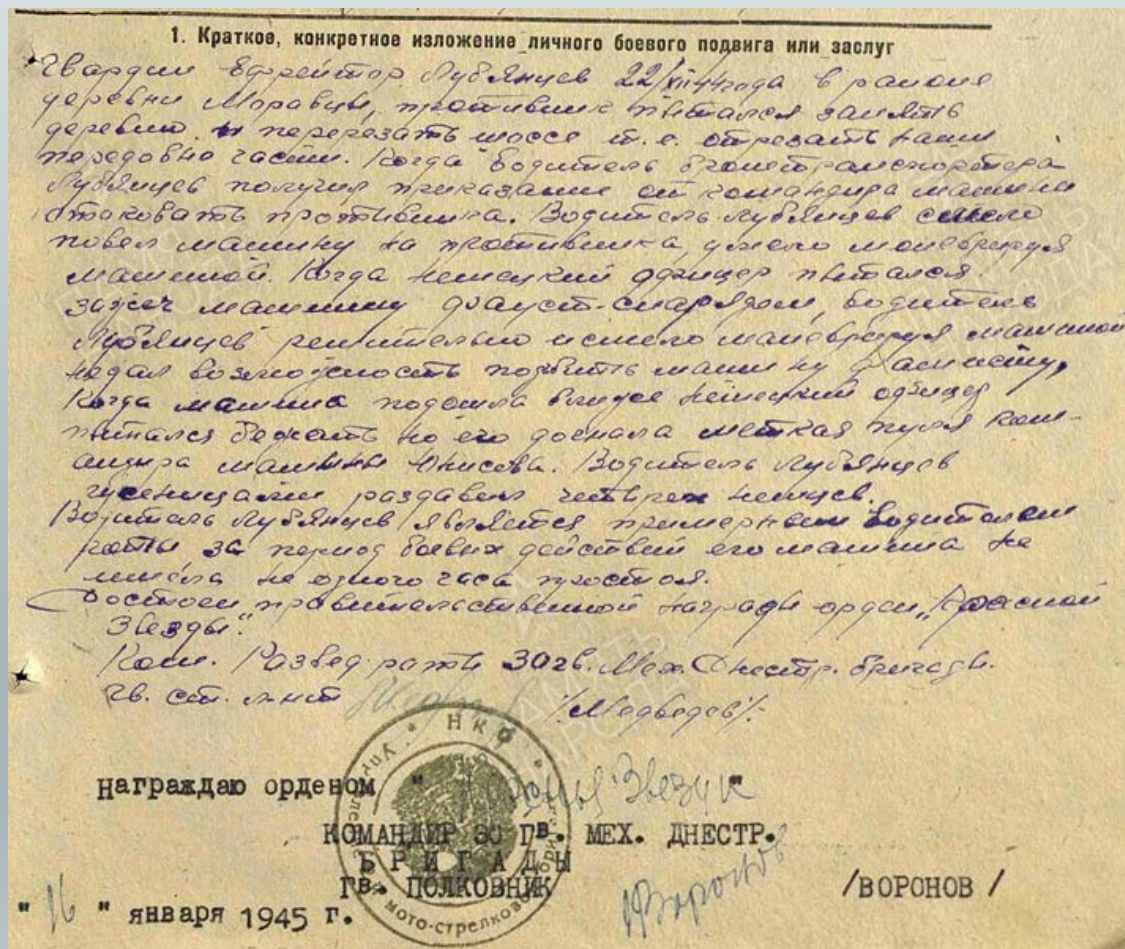 1. Краткое, конкретное изложение личного боевого подвига или заслуг
Гвардии Ефрейтор Лубянцев 22/XII 44 года в районе
деревни Моравцы, противник пытался занять
деревню и перерезать шоссе т.е. отрезать наши
передовые части. Когда водитель бронетранспортера
Лубянцев получил приказание от командира машины
атаковать противника. Водитель Лубянцев смело
повел машину на противника, умело маневрируя
машиной. Когда немецкий офицер пытался
зажеч машину фауст-снарядом, водитель
Лубянцев решительно и смело маневрируя машиной
недал возможность подбить машину фашисту,
Когда машина подошла ближе немецкий офицер
пытался бежать но его догнала меткая пуля ком-
андира машины Юнисова. Водитель Лубянцев
гусеницами раздавил четырех немцев.
Водитель Лубянцев является примерным водителем
роты за период боевых действий его машина не
имела не одного часа простоя.
Достоен правительственной награды орден "Красной
Звезды".
Ком. Развед. роты 30 гв. Мех. Днестр. бригады.
гв. ст. л-нт /Медведев/
НКО
Награждаю орденом " Звезда "
КОМАНДИР 30 ГВ. МЕХ. ДНЕСТР.
БРИГАДЫ
ГВ. ПОЛКОВНИК Воронов /ВОРОНОВ /
" 16 " января 1945 г.
мото-стрелково